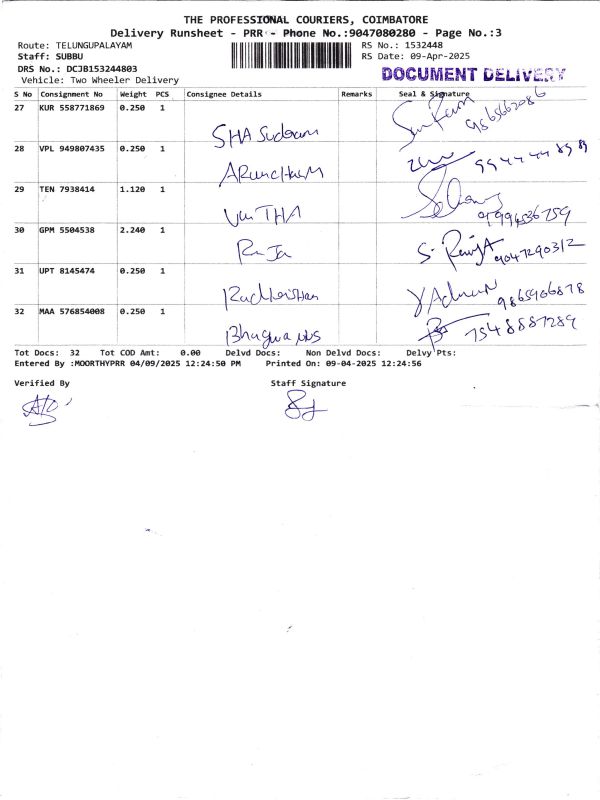 THE PROFESSIONAL COURIERS, COIMBATORE
Delivery Runsheet - PRR - Phone No.:9047080280 - Page No.:3
Route: TELUNGUPALAYAM RS No.: 1532448
Staff: SUBBU RS Date: 09-Apr-2025
DRS No.: DCJB153244803 DOCUMENT DELIVERY
Vehicle: Two Wheeler Delivery
S No Consignment No Weight PCS Consignee Details Remarks Seal & Signature
27 KUR 558771869 0.250 1
28 VPL 949807435 0.250 1
29 TEN 7938414 1.120 1
VanTHA
30 GPM 5504538 2.240 1
RaJa 9047290312
31 UPT 8145474 0.250 1
9865906878
32 MAA 576854008 0.250 1
7548887289
Tot Docs: 32 Tot COD Amt: 0.00 Delvd Docs: Non Delvd Docs: Delvy Pts:
Entered By :MOORTHYPRR 04/09/2025 12:24:50 PM Printed On: 09-04-2025 12:24:56
Verified By Staff Signature